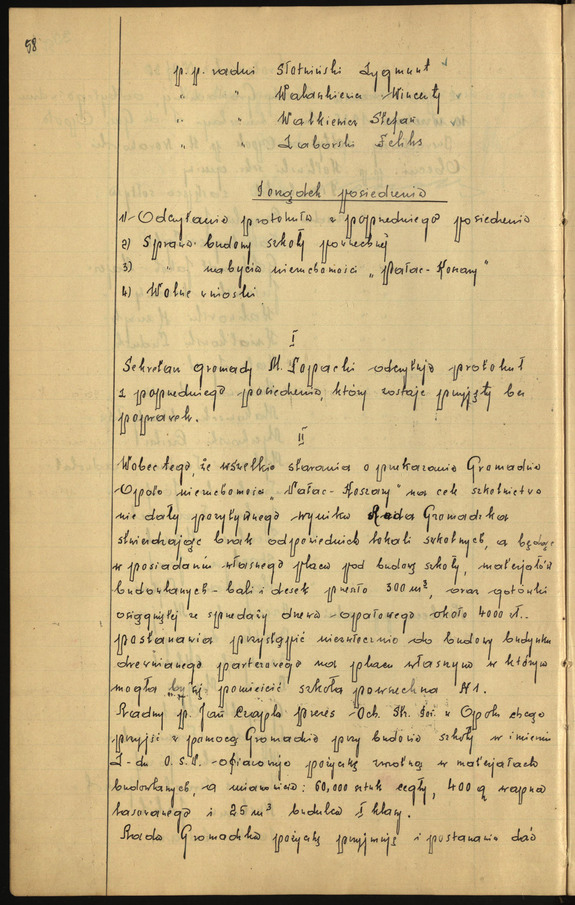 58
p.p. radni Słotwiński Zygmunt
" " Wałankiewicz Wincenty
" " Watkiewicz Stefan
" " Zaborski Feliks
Porządek posiedzenia
1) Odczytanie protokułu z poprzedniego posiedzenia
2) Sprawa budowy szkoły powszechnej
3) " nabycia nieruchomości „Pałac-Koszary"
4) Wolne wnioski
I
Sekretarz gromady M. odczytuje protokuł
z poprzedniego posiedzenia który zostaje przyjęty bez
poprawek.
II
Wobec tego, że wszelkie starania o przekazanie Gromadzie
Opole nieruchomości „Pałac-Koszary" na cele szkolnictwa
nie dały pozytywnego wyniku Rada Gromadzka
stwierdzając brak odpowiednich lokali szkolnych, a będąc
w posiadaniu własnego placu pod budowę szkoły, materjałów
budowlanych - bali i desek przeszło 300 m², oraz gotówki
osiągniętej ze sprzedaży drzewa opałowego około 4000 zł..
postanawia przystąpić niezwłocznie do budowy budynku
drewnianego parterowego na placu własnym w którym
mogła by się pomieścić szkoła powszechna N1.
Radny p. Jan Czajka prezes Och. Str. Poż. w Opolu chcąc
przyjść z pomocą Gromadzie przy budowie szkoły w imieniu
Z-du O.S.P. ofiarowuje pożyczkę zwrotną w materjałach
budowlanych, a mianowicie: 60,000 sztuk cegły, 400 q wapna
lasowanego i 25 m³ budulca I klasy.
Rada Gromadzka pożyczkę przyjmuje i postanawia dać